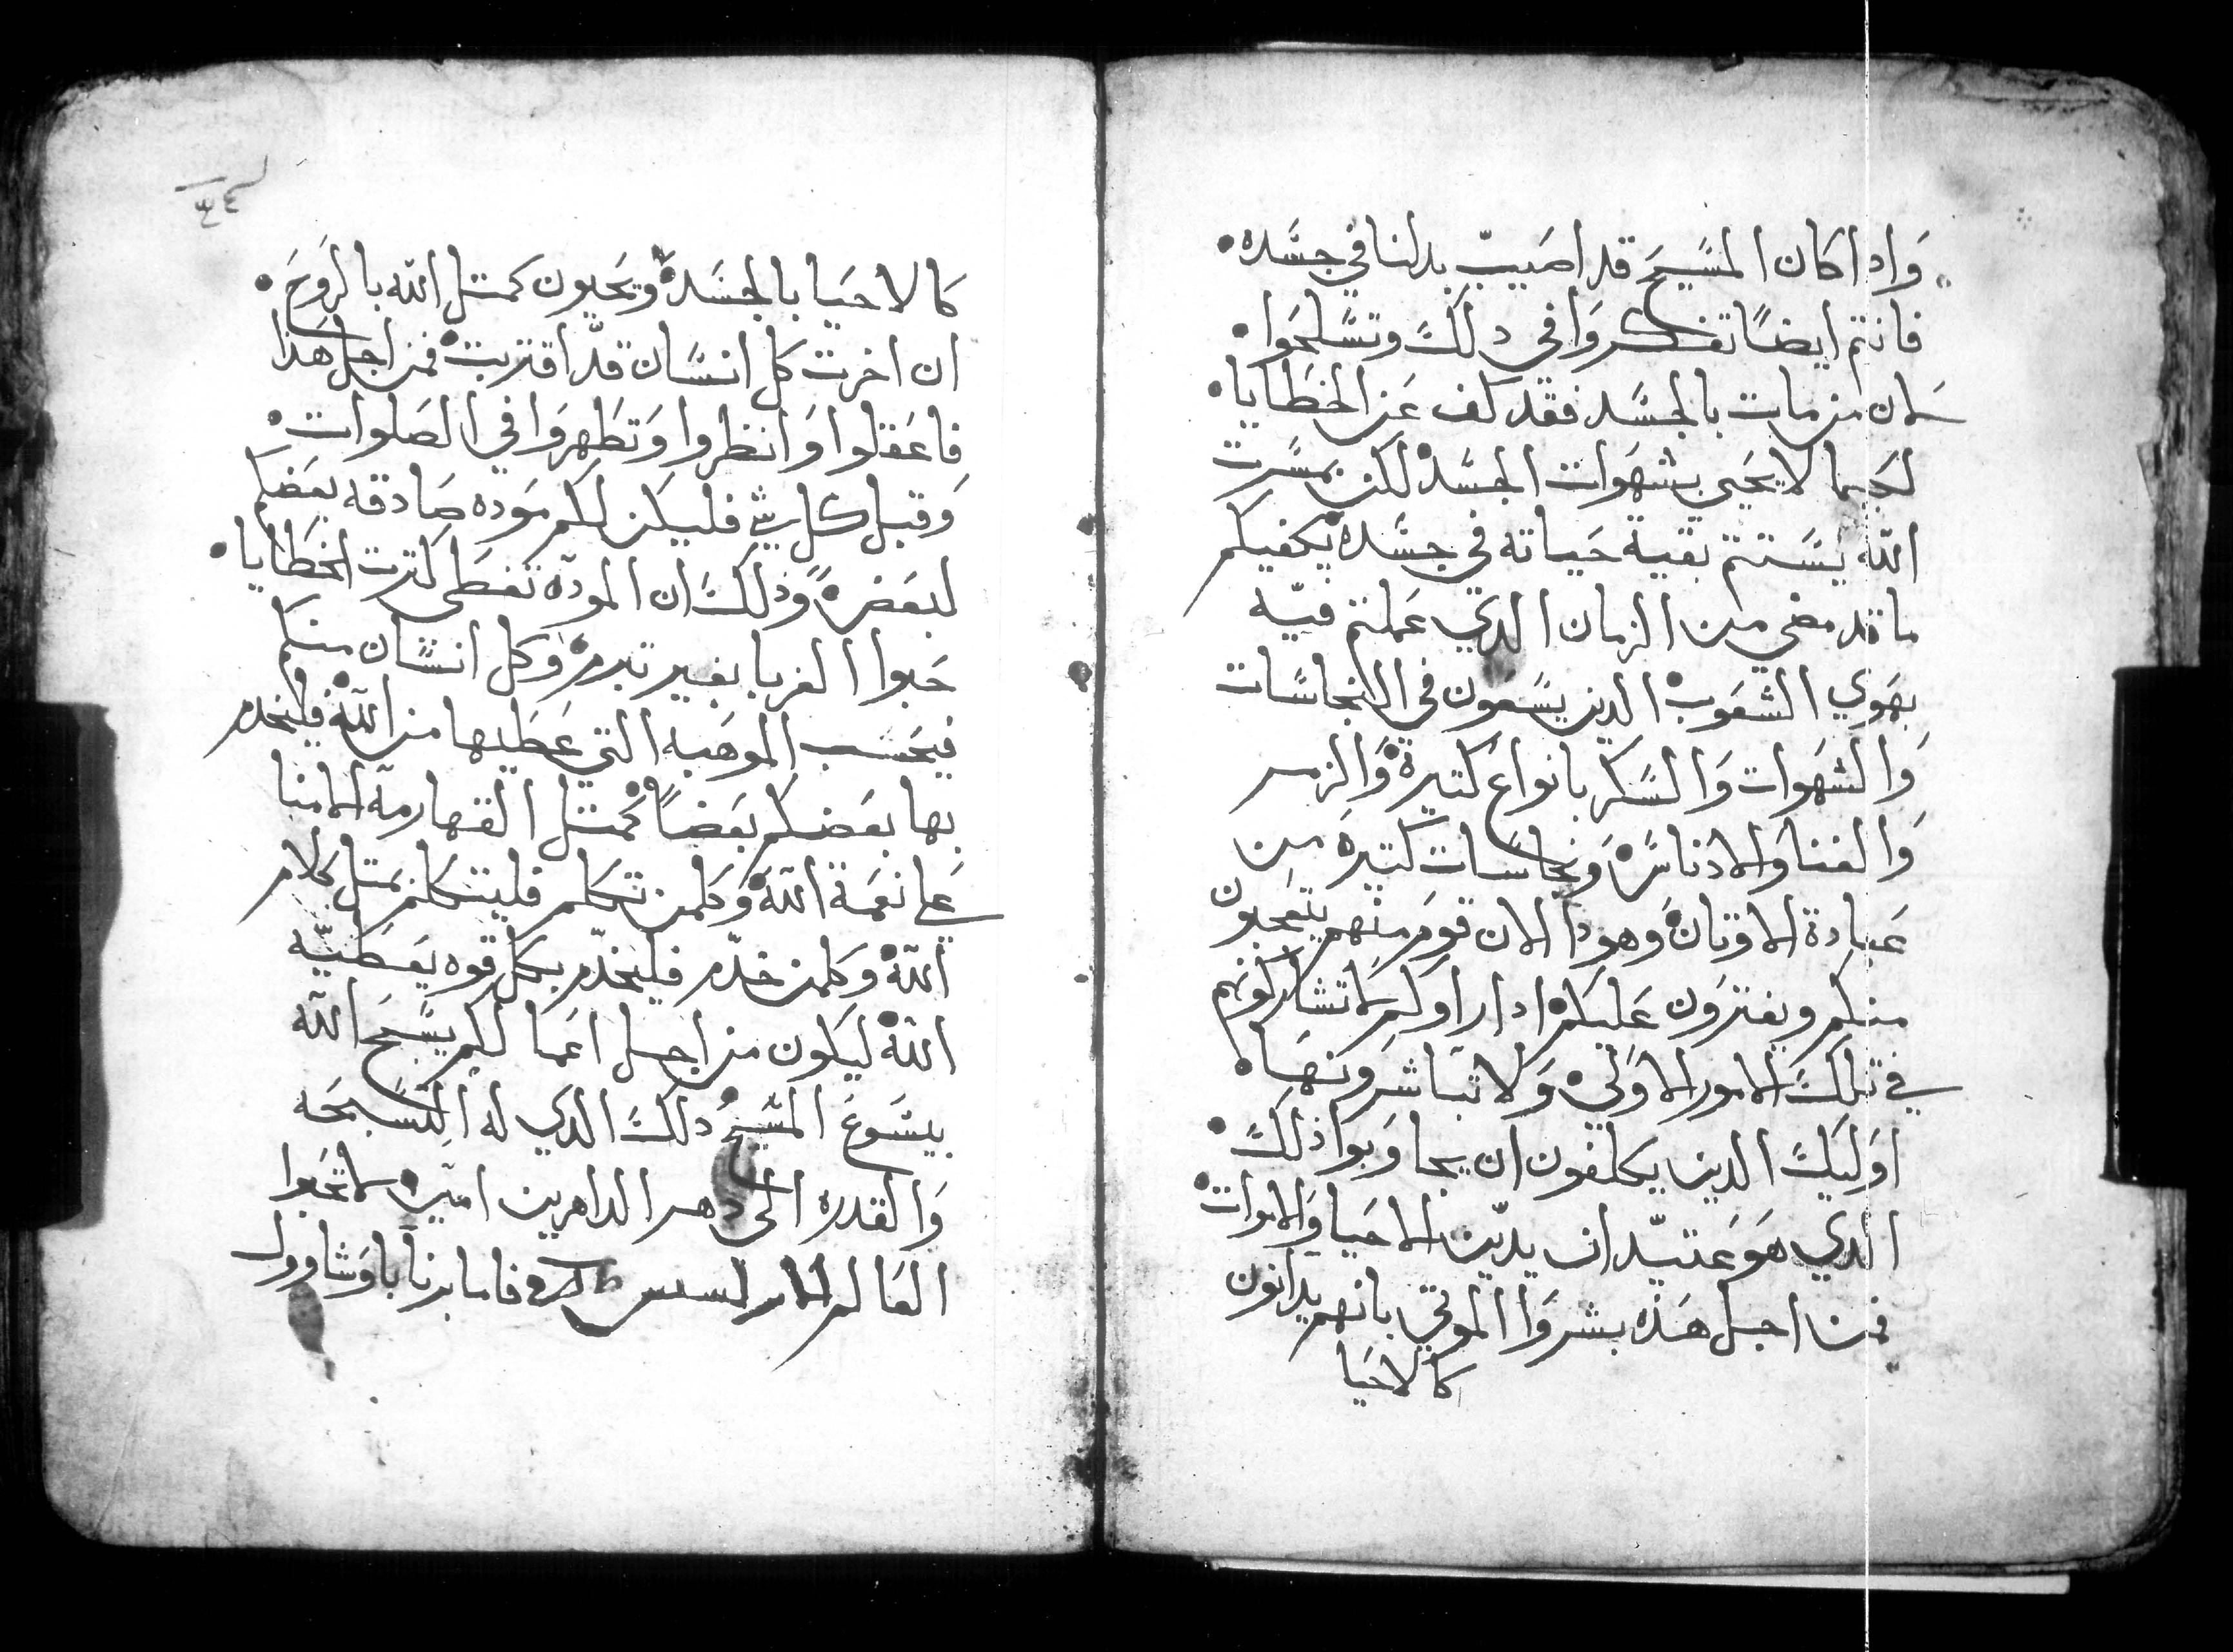 وَادا كان المسَيحَ قد اصَيبَ بدلنا في جسَده •
فانتم ايضًا تفكروَا في دلكَ وتسَلحَوا •
لان من مات بالجسَد فقد كف عَن الخطَايا •
لكيما لا يحَيي بشهَوات الجسَد لكن بمسَرت
الله يسَتتم بقية حيَاته في جسَده يكفيكم
ما قد مضي من الزمان الدي عَملتم فيه
بهَوي الشعَوب الدين يسَعون في النجاسَات
وَالشهَوات وَالسَكر بانواع كتيرة وَالزمر
وَالغنا وَالادناسَ وَنجاسَات كتيره من
عَبادة الاوتان وَهودا الان قومَ منهم يتعَجبون
منكم ويفترَون عَليكم ادا راوكم لا تشاركونهم
في تلكَ الامور الاوَلي وَلا تباشرَونهَا •
اوَليكَ الدين يكلفون ان يجاوَبوا دلكَ •
الدي هوَ عَتيد ان يدين الاحيَا وَالاموات •
فمن اجل هَده بشرَوا الموتي بانهم يدانون
كالاحيَا
كالاحيَا بالجسَد ويحَيون كمتل الله بالروَحَ •
ان اخرت كل انسَان قد اقتربت فمن اجل هَدا
فاعَقلوا وَانظروا وَتطَهروَا في الصَلوات •
وَقبل كل شي فليكن لكم موَده صَادقه بعَضكم
لبعَض وَدلكَ ان المودَه تغطَي كترت الخطَايا •
حَبوا الغربا بغير تبرم وَكل انسَان منكم
فبحَسَب الموهَبه التي عَطَيها من الله فليخدم
بها بعَضكم بعَضًا كمتل القهارمه الامنا
عَلي نعَمة الله وَكلمن تتكلم فليتكلم بمتل كلام
الله وَكلمن خدَم فليخدَم بكل قوه يعَطَيه
الله ليكون من اجل اعَمالكم يسَبحَ الله
بيسَوعَ المسَيح دلكَ الدي له التسَبحَه
وَالقدره الي دهر الداهرين امين لا تحَبوا
العَالم فاما برنابا وَشاوول